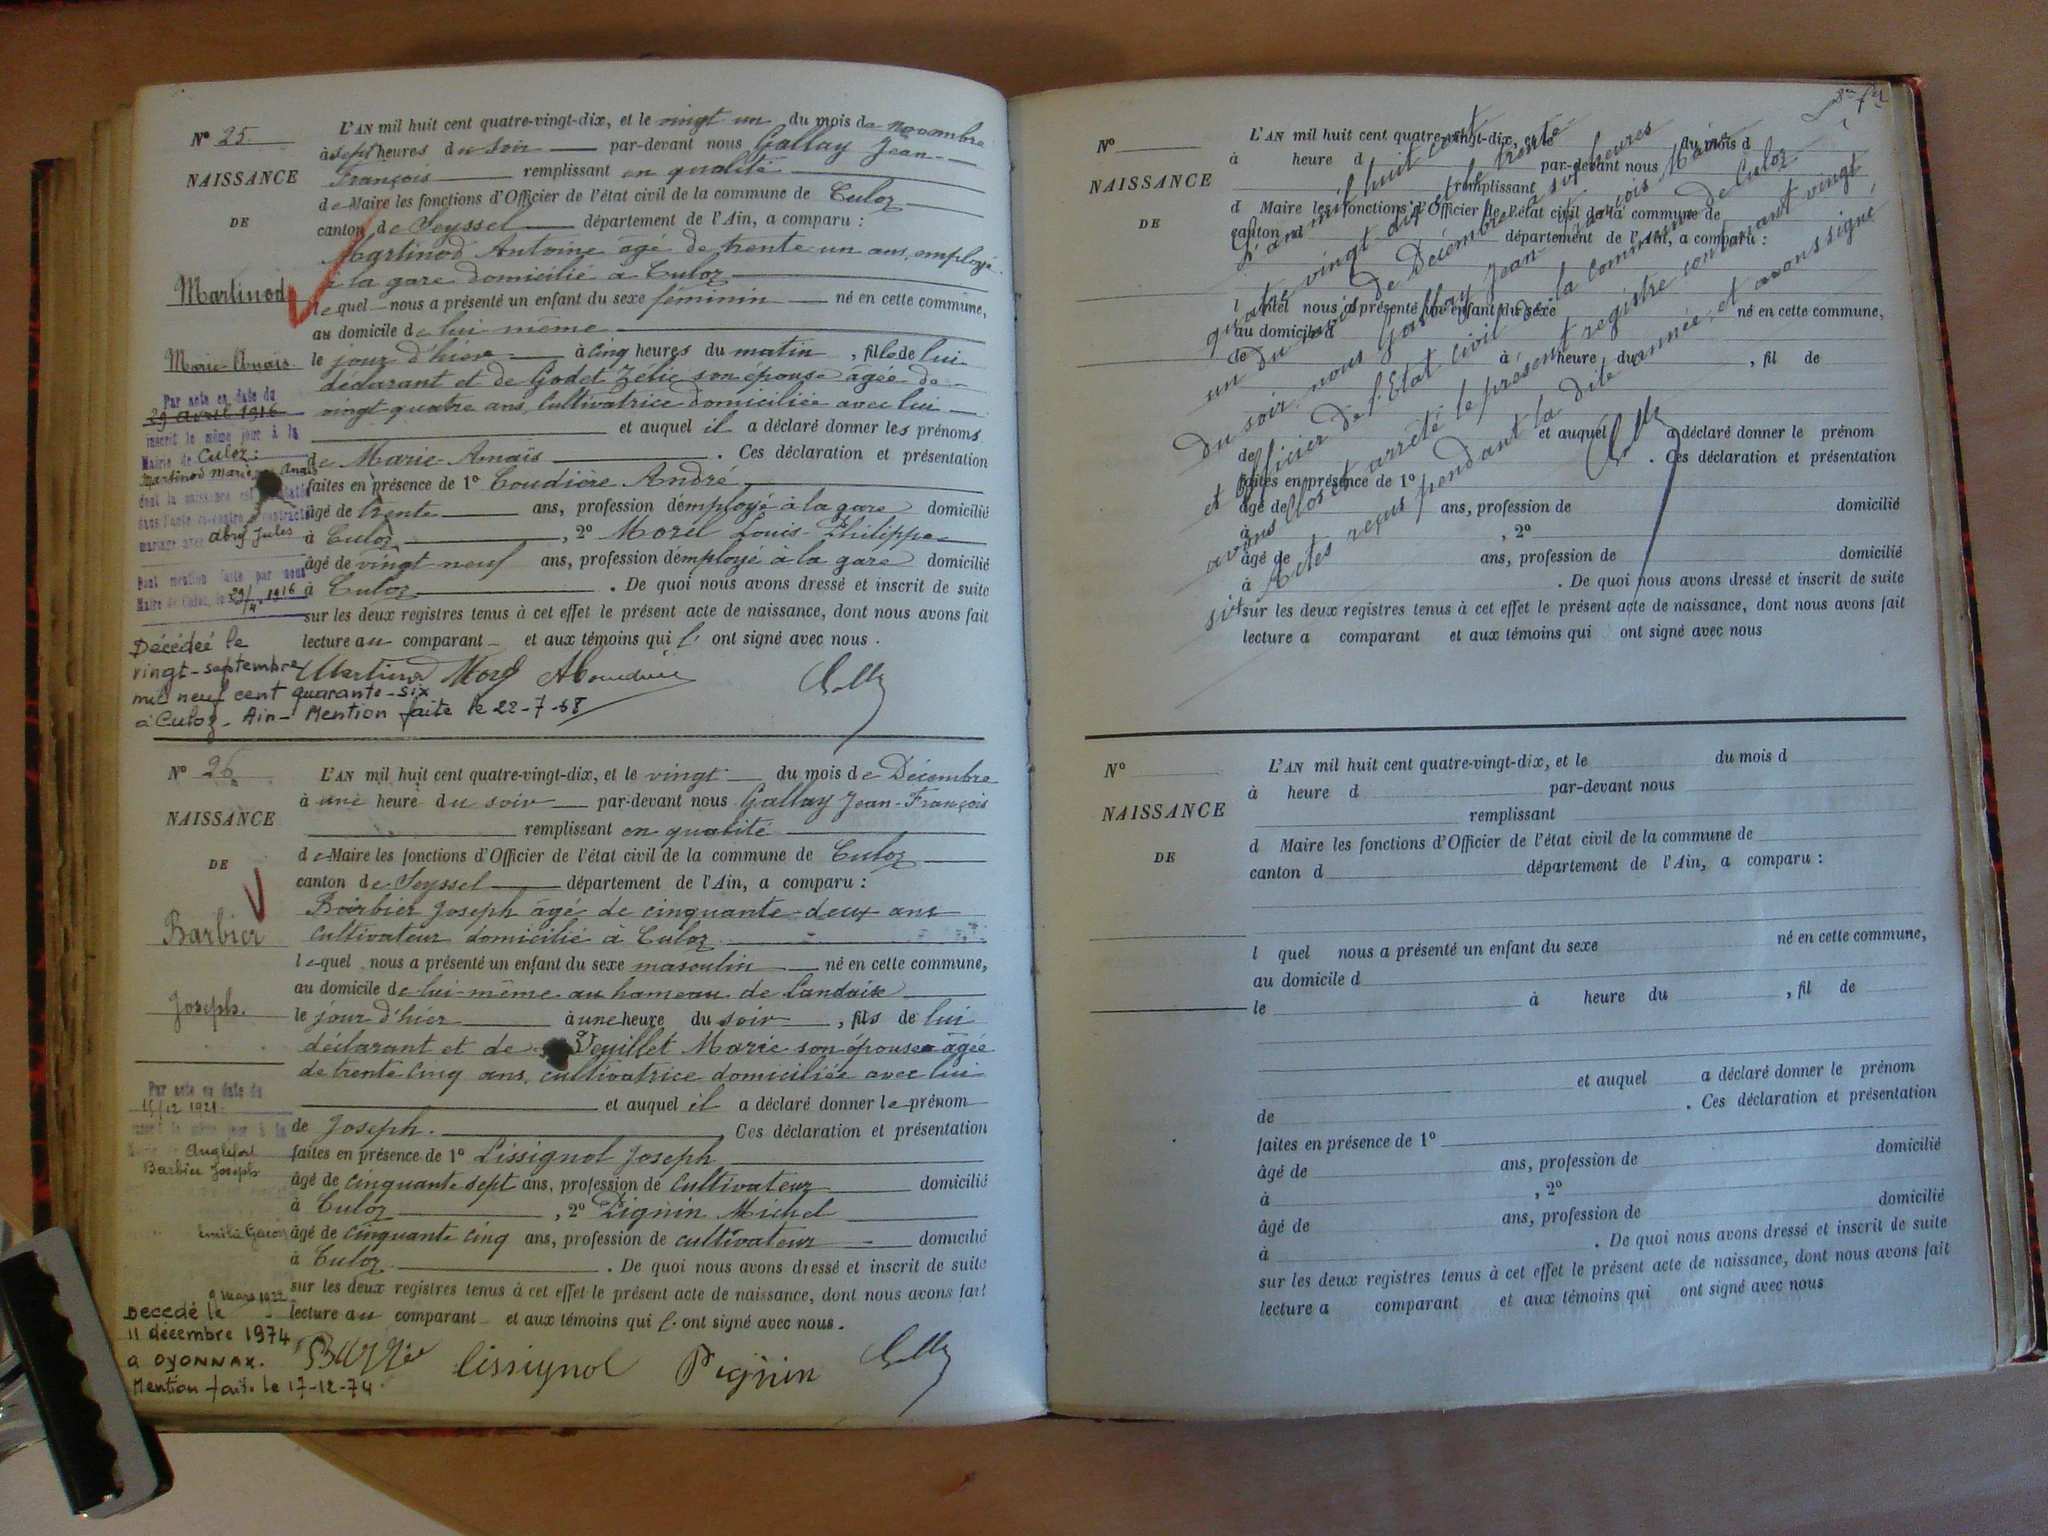 N° 25
NAISSANCE
DE
Martinod
Marie Anaïs
L'AN mil huit cent quatre-vingt-dix, et le vingt un du mois de novembre
à sept heures du soir par-devant nous Gallay Jean-
François remplissant en qualité
de Maire les fonctions d'Officier de l'état civil de la commune de Culoz
canton de Seyssel département de l'Ain, a comparu :
Martinod Antoine âgé de trente un ans, employé
à la gare domicilié à Culoz
lequel nous a présenté un enfant du sexe féminin né en cette commune,
au domicile de lui même
le jour d'hier à cinq heures du matin, fille de lui
déclarant et de Godet Zélie son épouse âgée de
vingt quatre ans, cultivatrice domiciliée avec lui
et auquel il a déclaré donner les prénoms
de Marie-Anaïs. Ces déclaration et présentation
faites en présence de 1° Coudière André
âgé de trente ans, profession d'employé à la gare domicilié
à Culoz, 2° Morel Louis-Philippe
âgé de vingt neuf ans, profession d'employé à la gare domicilié
à Culoz. De quoi nous avons dressé et inscrit de suite
sur les deux registres tenus à cet effet le présent acte de naissance, dont nous avons fait
lecture au comparant et aux témoins qui l' ont signé avec nous.
Par acte en date du
29 avril 1916
inscrit le même jour à la
Mairie de Culoz
Martinod Marie Anaïs
dont la naissance est constatée
dans l'acte ci-contre a contracté
mariage avec Jules
Dont mention faite par nous
Maire de Culoz, le 29/4 1916
Décédée le
vingt-septembre
mil neuf cent quarante-six
à Culoz - Ain - Mention faite le 22-7-58
Martinod Morel
N° 26
NAISSANCE
DE
Barbier
Joseph.
L'AN mil huit cent quatre-vingt-dix, et le vingt du mois de Décembre
à une heure du soir par-devant nous Gallay Jean-François
remplissant en qualité
de Maire les fonctions d'Officier de l'état civil de la commune de Culoz
canton de Seyssel département de l'Ain, a comparu :
Barbier Joseph âgé de cinquante-deux ans
cultivateur domicilié à Culoz
lequel nous a présenté un enfant du sexe masculin né en cette commune,
au domicile de lui-même au hameau de Landaise
le jour d'hier à une heure du soir, fils de lui
déclarant et de Veuillet Marie son épouse âgée
de trente cinq ans, cultivatrice domiciliée avec lui
et auquel il a déclaré donner le prénom
de Joseph. Ces déclaration et présentation
faites en présence de 1° Lissignol Joseph
âgé de cinquante sept ans, profession de cultivateur domicilié
à Culoz, 2° Pignin Michel
âgé de cinquante cinq ans, profession de cultivateur domicilié
à Culoz. De quoi nous avons dressé et inscrit de suite
sur les deux registres tenus à cet effet le présent acte de naissance, dont nous avons fait
lecture au comparant et aux témoins qui l' ont signé avec nous.
Par acte en date du
15/12 1921
inscrit le même jour à la
Anglefort
Barbier Joseph
9 mars 1922
Décédé le
11 décembre 1974
à OYONNAX.
Mention faite le 17-12-74
Lissignol Pignin
N°
NAISSANCE
DE
L'AN mil huit cent quatre-vingt-dix, et le du mois d
à heure d par-devant nous
remplissant
d Maire les fonctions d'Officier de l'état civil de la commune de
canton d département de l'Ain, a comparu :
l quel nous a présenté un enfant du sexe né en cette commune,
au domicile d
le à heure du , fil de
et auquel a déclaré donner le prénom
de . Ces déclaration et présentation
faites en présence de 1°
âgé de ans, profession de domicilié
à , 2°
âgé de ans, profession de domicilié
à . De quoi nous avons dressé et inscrit de suite
sur les deux registres tenus à cet effet le présent acte de naissance, dont nous avons fait
lecture a comparant et aux témoins qui ont signé avec nous
L'an mil huit cent
quatre vingt dix et le trente
un du mois de Décembre à sept heures
du soir, nous Gallay Jean François Maire
et officier de l'Etat civil de la commune de Culoz
avons clos et arrêté le présent registre contenant vingt
six actes reçus pendant la dite année, et avons signé
N°
NAISSANCE
DE
L'AN mil huit cent quatre-vingt-dix, et le du mois d
à heure d par-devant nous
remplissant
d Maire les fonctions d'Officier de l'état civil de la commune de
canton d département de l'Ain, a comparu :
l quel nous a présenté un enfant du sexe né en cette commune,
au domicile d
le à heure du , fil de
et auquel a déclaré donner le prénom
de . Ces déclaration et présentation
faites en présence de 1°
âgé de ans, profession de domicilié
à , 2°
âgé de ans, profession de domicilié
à . De quoi nous avons dressé et inscrit de suite
sur les deux registres tenus à cet effet le présent acte de naissance, dont nous avons fait
lecture a comparant et aux témoins qui ont signé avec nous